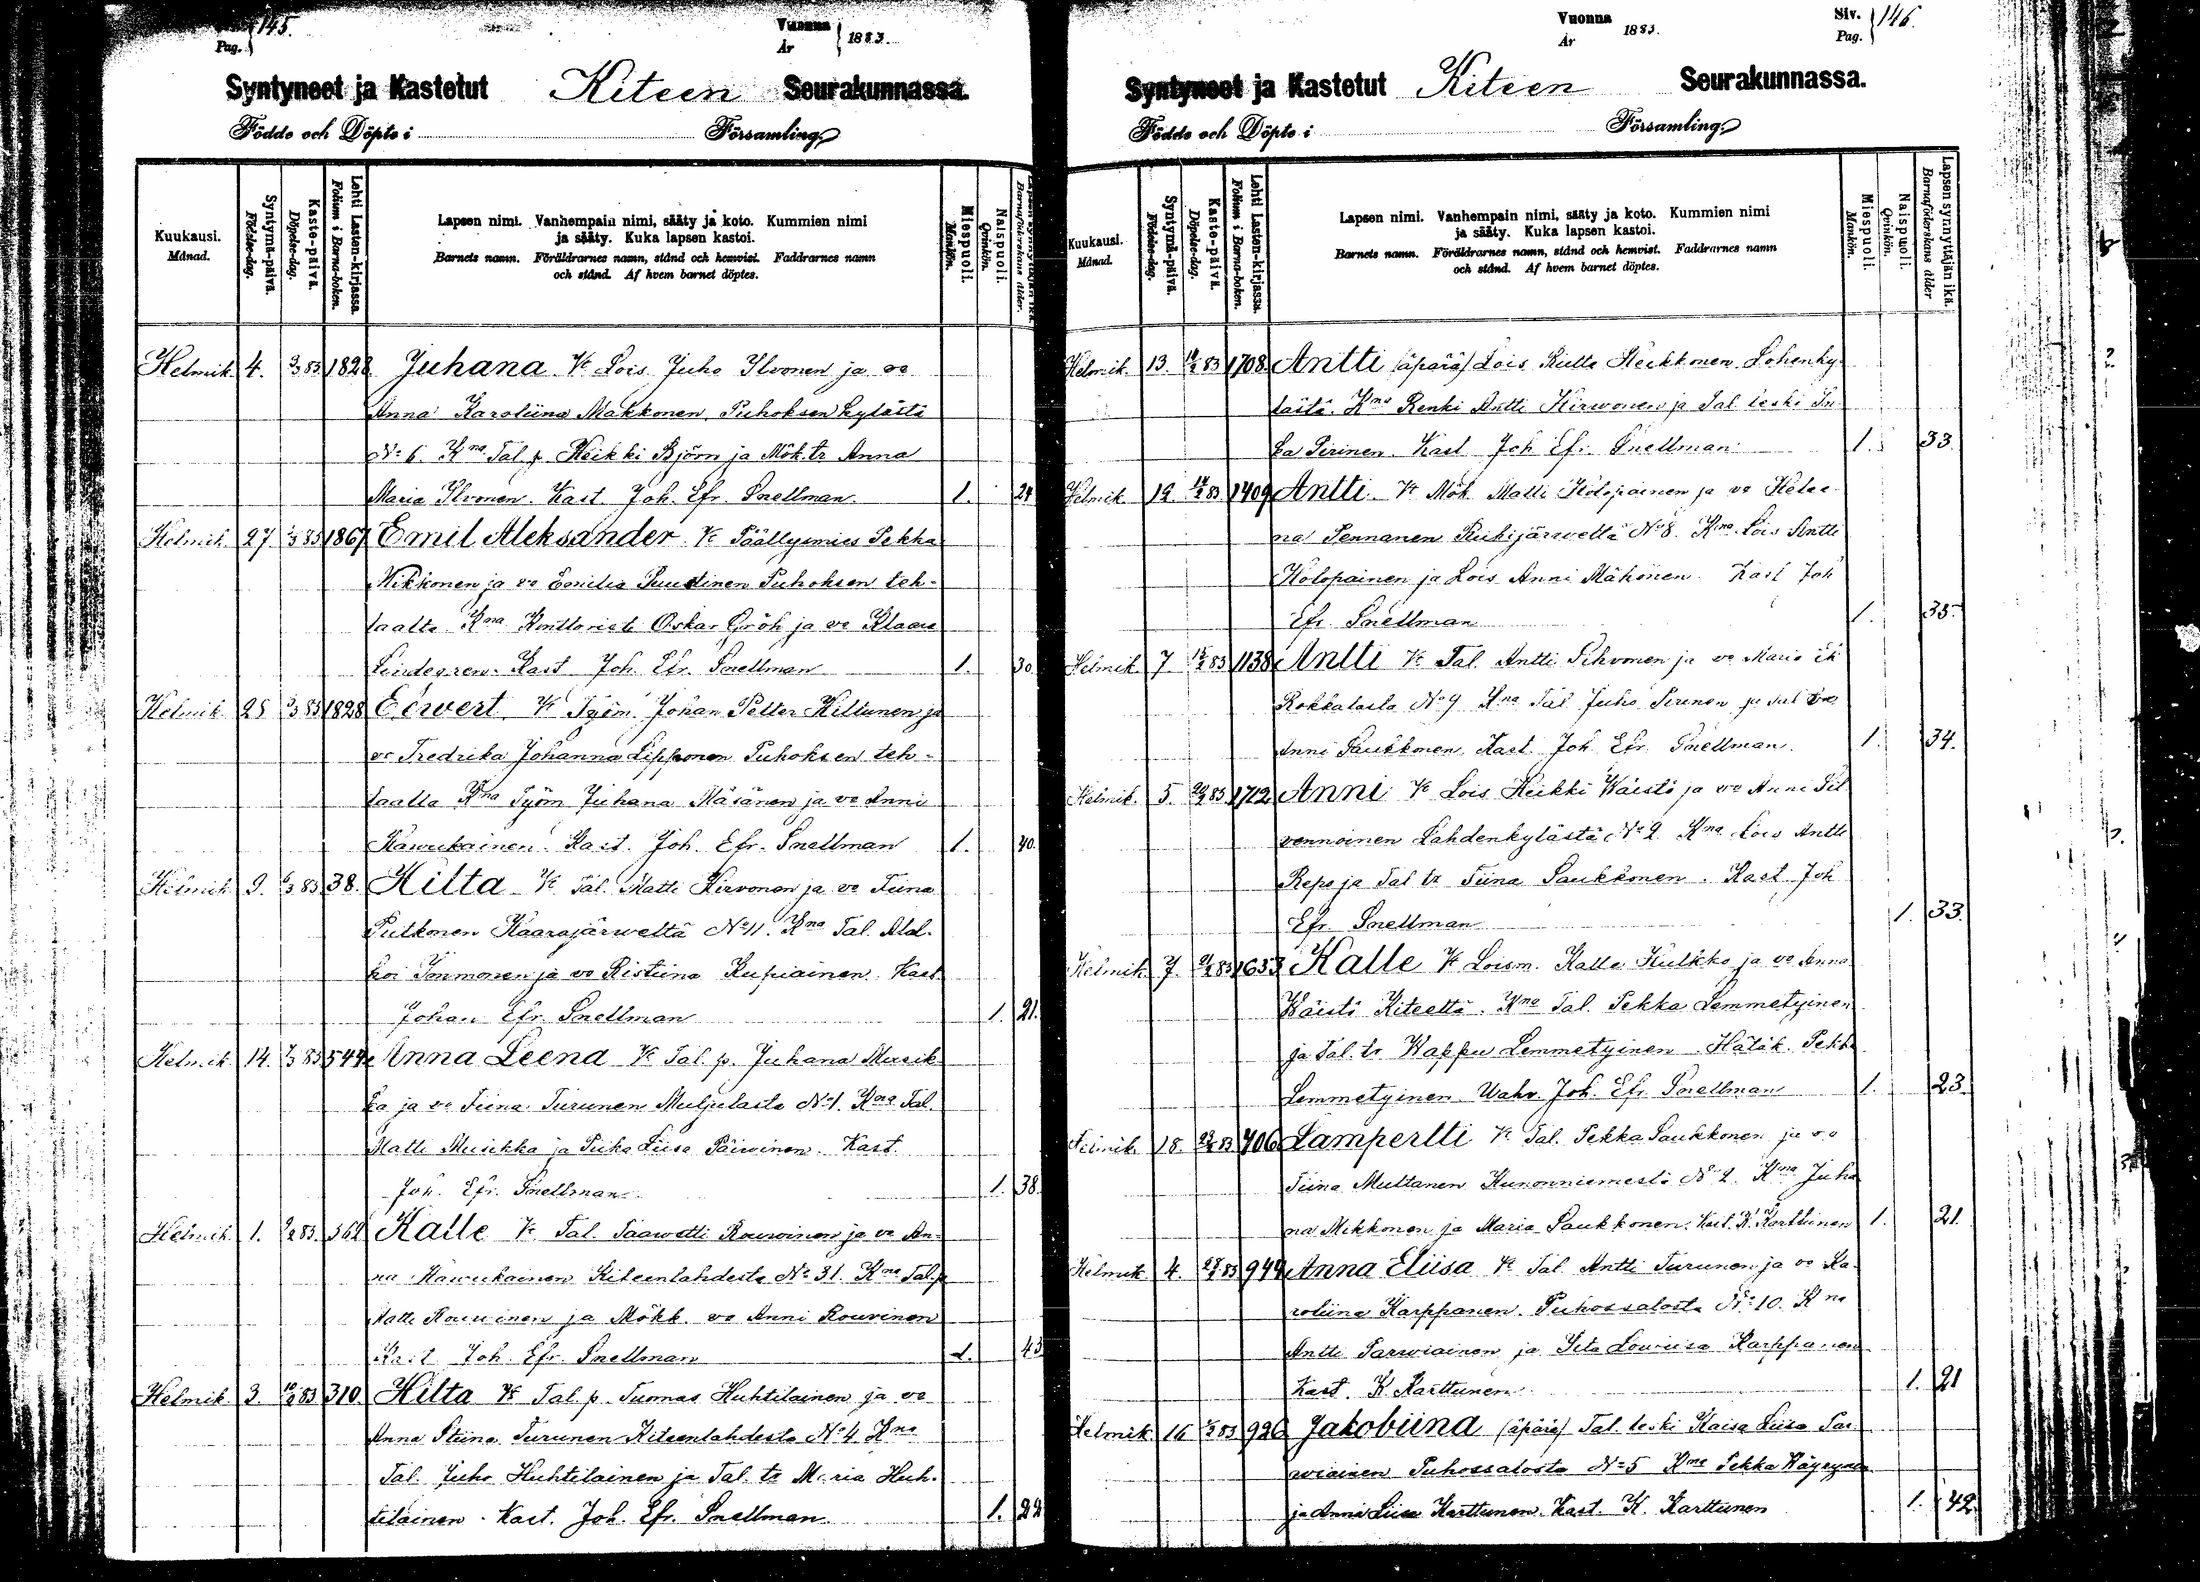 145.
Pag.
Vuonna
År
1883.
Syntyneet ja Kastetut Kiteen Seurakunnassa.
Födde och Döpte i Församling
Kuukausi.
Månad.
Syntymä-päivä.
Födelse-dag.
Kaste-päivä.
Döpelse-dag.
Lehti Lasten-kirjassa.
Folium i Barna-boken.
Lapsen nimi. Vanhempain nimi, sääty ja koto. Kummien nimi
ja sääty. Kuka lapsen kastoi.
Barnets namn. Föräldrarnes namn, stånd och hemvist. Faddrarnes namn
och stånd. Af hvem barnet döptes.
Miespuoli.
Mankön.
Naispuoli.
Qvinkön.
Barnaföderskans ålder.
Helmik. 4. 2/3 83 1828 Juhana Vt Lois Juho Ilvonen ja vo
Anna Karoliina Makkonen Puhoksen kylästä
No 6. Kna Tal p. Heikki Björn ja Mök.tr Anna
Maria Ilvonen. Kast. Joh. Efr. Snellman. 1. 24
Helmik 27 1867 Emil Aleksander Vt Päällysmies Pekka
Mikkonen ja vo Emilia Puustinen Puhoksen teh-
taalta Kna Konttoristi Oskar Gröh ja vo Klaara
Lindegren. Kast Joh. Efr. Snellman 1. 30.
Helmik 25 1828 Eewert Vt Työm. Johan Petter Hiltunen ja
vo Fredrika Johanna Lipponen Puhoksen teh-
taalta Kna Työm Juhana Häsänen ja vo Anni
Kaurukainen. Kast. Joh. Efr. Snellman 1. 40.
Helmik 9. 6/3 83 38. Hilta Vt Tal. Matti Hirvonen ja vo Tiina
Putkonen Kaarajärweltä No 11. Kna Tal. Ald.
koi Immonen ja vo Ristiina Kupiainen. Kast.
Johan Efr. Snellman 1. 21.
Helmik 14. 7/3 83 544 Anna Leena Vt Tal. p. Juhana Musik
ka ja vo Tiina Turunen Muljulasta No 1. Kna Tal.
Matti Musikka ja Piika Liisa Päivinen. Kast.
Joh. Efr. Snellman. 1. 38.
Helmik 1. 362 Kalle Vt Tal. Taawetti Rouvinen ja vo An-
na Kaurukainen Kiteenlahdesta No 31. Kna Tal.p
Matti Rouvinen ja Mökk. vo Anni Rouvinen
Kast Joh. Efr. Snellman 1. 43
Helmik 3. 10/2 83 310. Hilta Vt Tal. p. Tuomas Huhtilainen ja vo
Anna Stiina Turunen Kiteenlahdesta No 4 Kna
Tal. Juho Huhtilainen ja Tal. tr Maria Huh-
tilainen. Kast. Joh. Efr. Snellman. 1. 22
Vuonna
År
1883.
Siv.
Pag.
146.
Syntyneet ja Kastetut Kiteen Seurakunnassa.
Födde och Döpte i Församling
Kuukausi.
Månad.
Syntymä-päivä.
Födelse-dag.
Kaste-päivä.
Döpelse-dag.
Lehti Lasten-kirjassa.
Folium i Barna-boken.
Lapsen nimi. Vanhempain nimi, sääty ja koto. Kummien nimi
ja sääty. Kuka lapsen kastoi.
Barnets namn. Föräldrarnes namn, stånd och hemvist. Faddrarnes namn
och stånd. Af hvem barnet döptes.
Miespuoli.
Mankön.
Naispuoli.
Qvinkön.
Lapsen synnyttäjän ikä.
Barnaföderskans ålder
Helmik 13. 1708 Antti (äpärä) Lois Heikkonen Lohenky-
lästä. Kna Renki Antti Hirwonen ja Tal leski In-
ka Pirinen Kast Joh Efr. Snellman 1. 33.
Helmik 12 1409 Antti Vt Mök Matti Holopainen ja vo Hele-
na Pennanen Rukijärweltä No 8. Kna Lois Antti
Holopainen ja Lois Anni Mähönen. Kast Joh
Efr. Snellman 1. 35.
Helmik 7 1138 Antti Vt Tal. Antti Sihvonen ja vo Maria
Rokkalasta No 9 Kna Tal Juho Pirinen ja tal vo
Anni Saukkonen. Kast. Joh Efr. Snellman. 1. 34.
Helmik 5. 1712 Anni Vt Lois Heikki Wäistö ja vo Anni Sil
vennoinen Lahdenkylästä No 2 Kna Lois Antti
Repo ja Tal tr Tiina Saukkonen. Kast Joh
Efr. Snellman 1. 33.
Helmik 7. 1653 Kalle Vt Loism. Kalle Hulkko ja vo Anna
Wäistö Kiteeltä. Kna Tal. Pekka Lemmetyinen
ja Tal. tr. Wappu Lemmetyinen. Hätäk. Pekka
Lemmetyinen Wahv. Joh. Efr. Snellman 1. 23.
Helmik 18. 706 Lampertti Vt Tal. Pekka Saukkonen ja vo
Tiina Multanen Kunonniemestä No 2. Kna Juha
na Mikkonen ja Maria Saukkonen. Kast. K. Karttunen 1. 21
Helmik 4. 944 Anna Eliisa Vt Tal Antti Turunen ja vo Ka-
roliina Karppanen. Puhossalosta No 10. Kna
Antti Parviainen ja Ita Lowiisa Karppanen
Kast. K. Karttunen. 1. 21
Helmik 16 926 Jakobiina (äpärä) Tal. leski Kaisa Liisa Par-
wiainen Puhossalosta No 5 Kna Pekka Käyhynen
ja Anna Liisa Karttunen. Kast. K. Karttunen 1. 42.